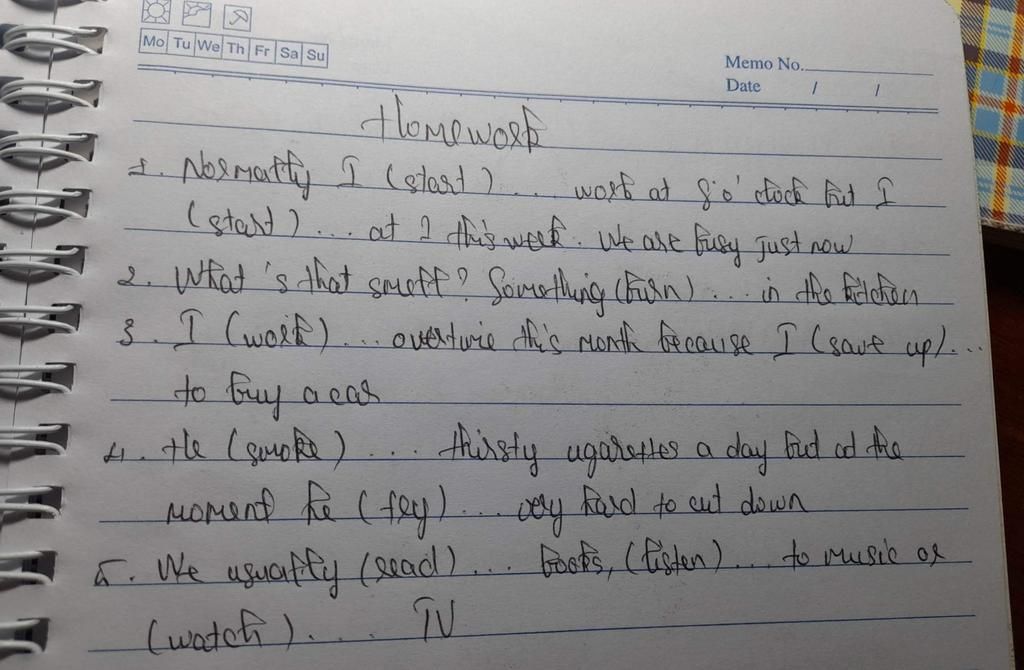 Mo Tu We Th Fr Sa Su
Memo No.
Date / /
Homework
1. Normally I (start) ... work at 8 o'clock but I
(start) ... at 7 this week. We are busy just now
2. What's that smell? Something (burn) ... in the kitchen
3. I (work) ... overtime this month because I (save up) ...
to buy a car
4. He (smoke) ... thirsty cigarettes a day but at the
moment he (try) ... very hard to cut down
5. We usually (read) ... books, (listen) ... to music or
(watch) .... TV